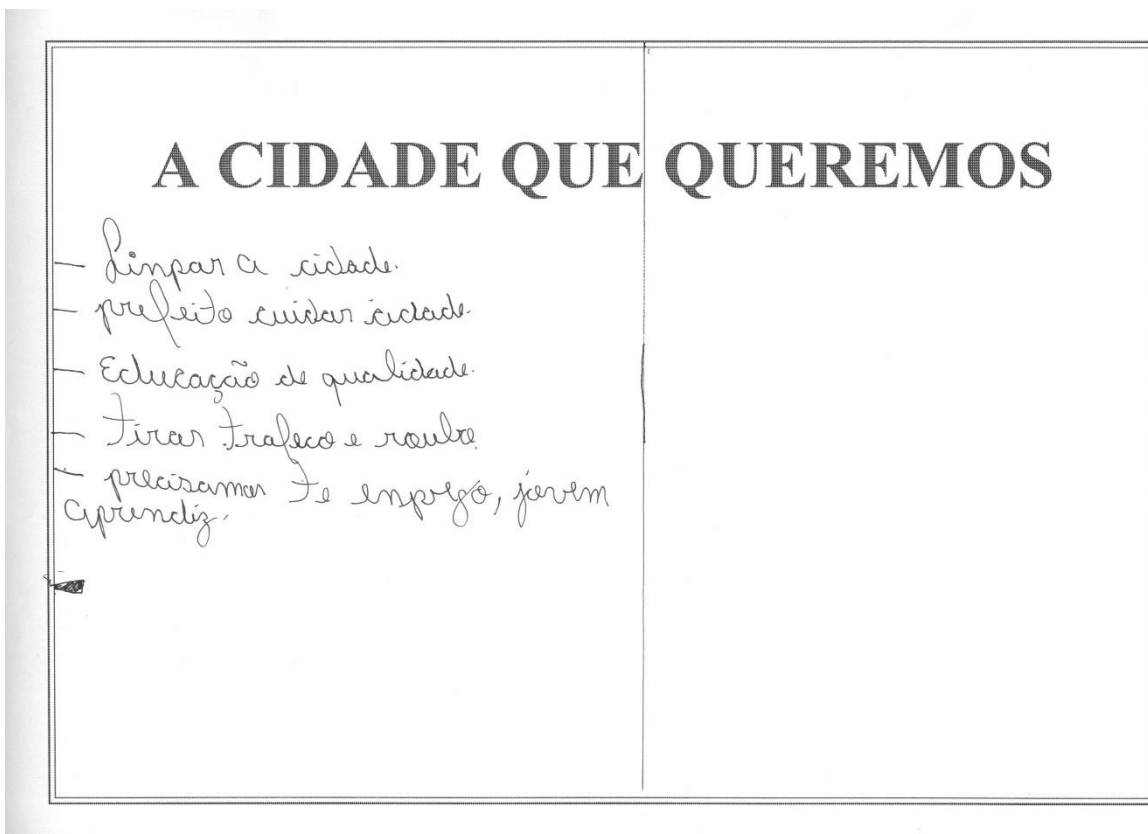 A CIDADE QUE QUEREMOS
— Linpar a cidade.
— prefeito cuidar cidade.
— Educação de qualidade.
— Tirar trafeco e roubo
— precisamos te enprego, jovem
aprendiz.